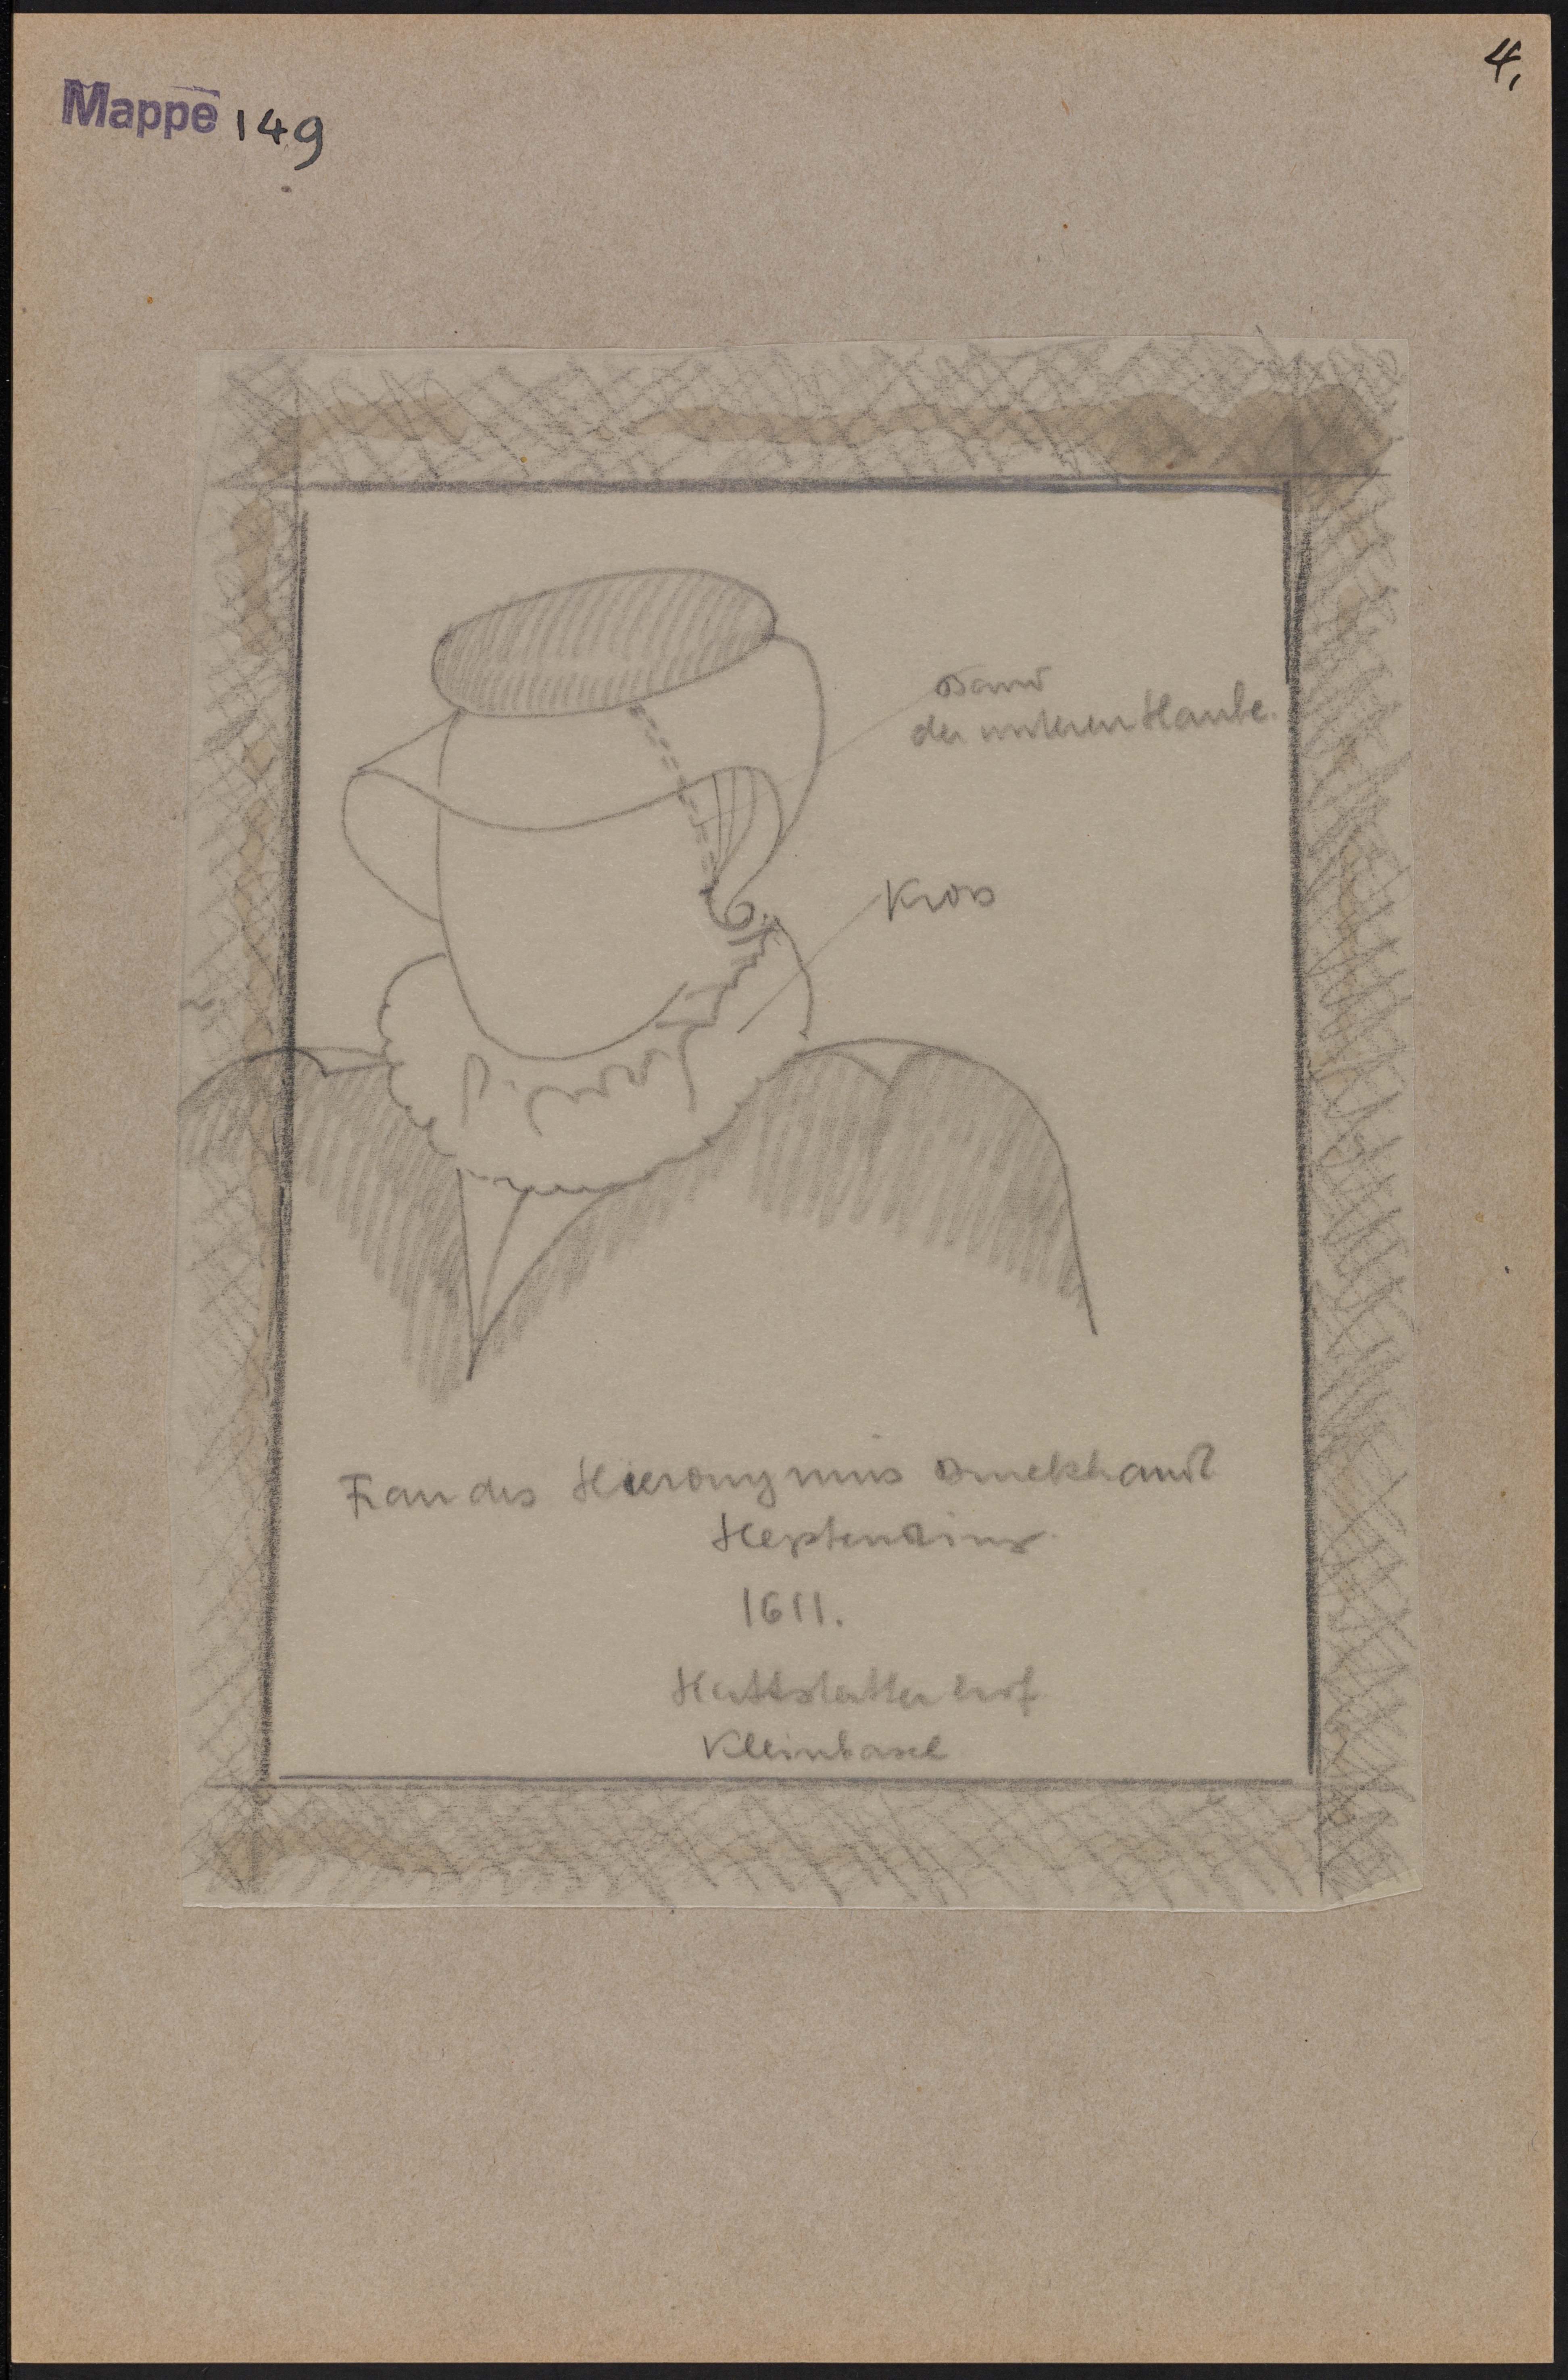 Mappe 149
4.
Band
der unteren Haube.
Krös
Frau des Hieronymus Burckhardt
1611.
Hattstätterhof
Kleinbasel